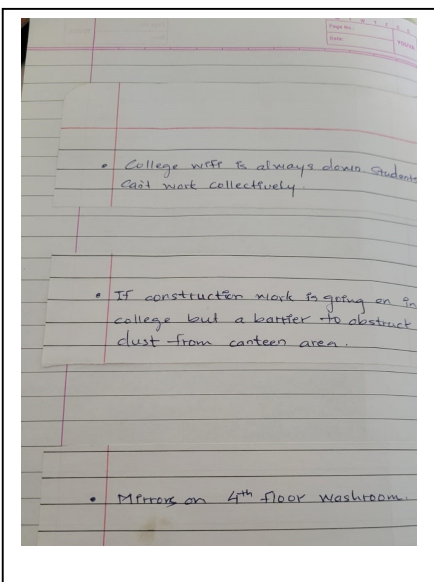 Page No.:
Date:
YOUVA
• College wifi is always down Students
can't work collectively.
• If construction work is going on in
college but a barrier to obstruct
dust from canteen area.
• Mirrors on 4th floor washroom.